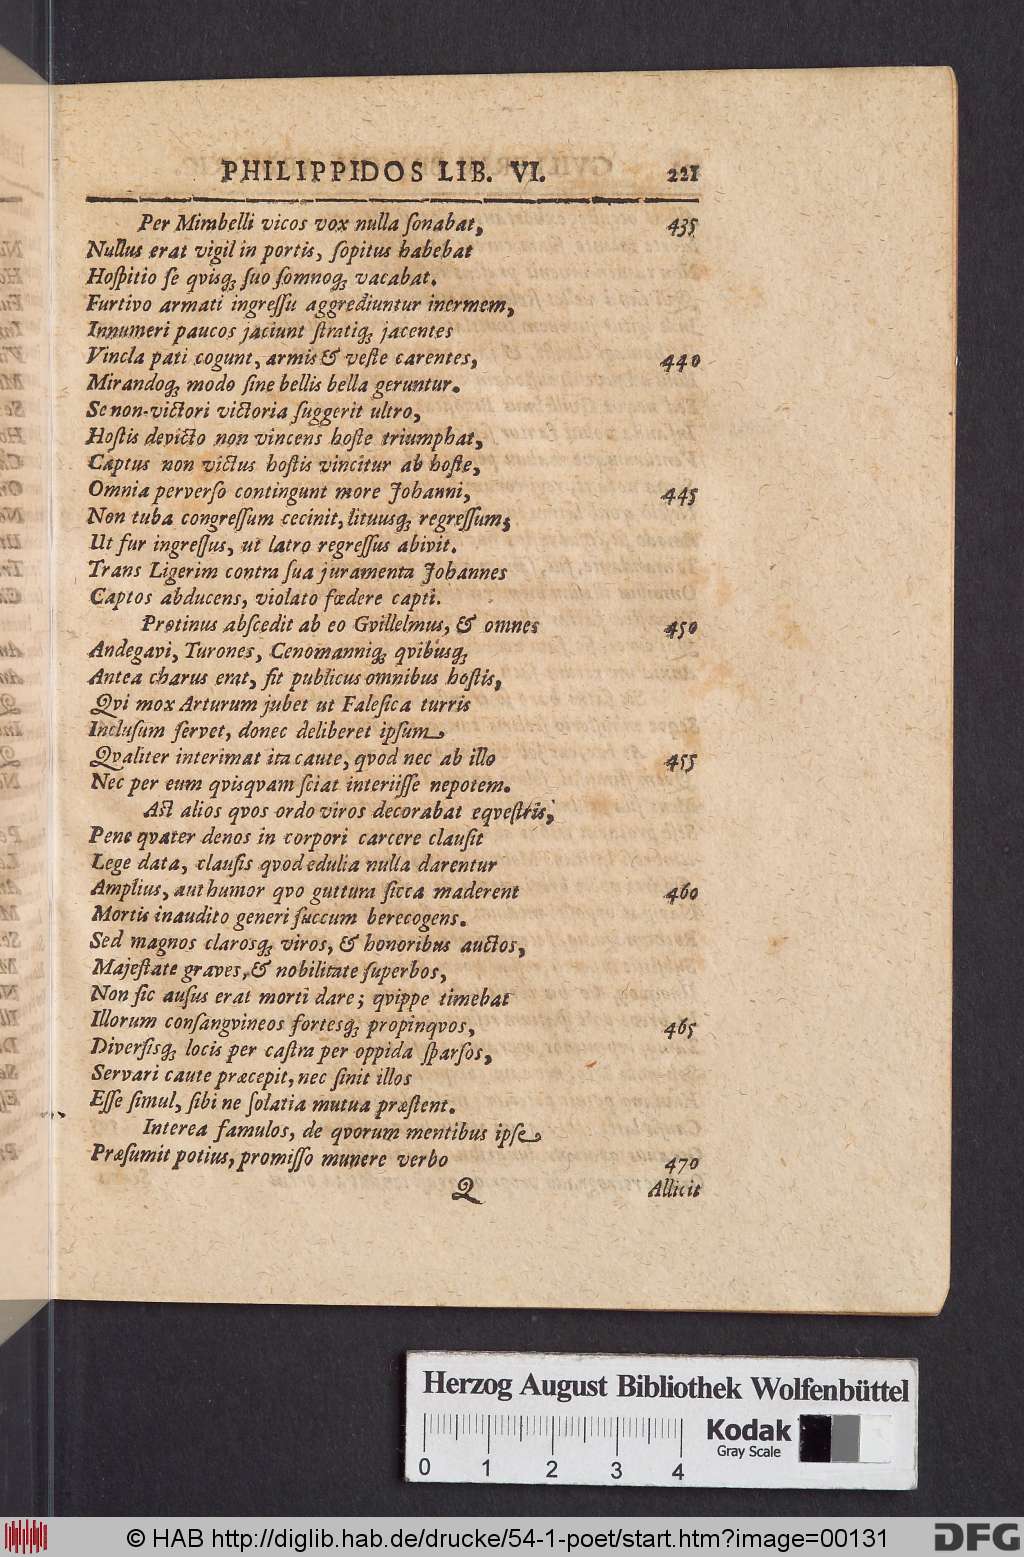 PHILIPPIDOS LIB. VI. 221
Per Mirabelli vicos vox nulla ſonabat, 435
Nullus erat vigil in portis, ſopitus habebat
Hoſpitio ſe qvisq; ſuo ſomnoq; vacabat.
Furtivo armati ingreſſu aggrediuntur inermem,
Innumeri paucos jaciunt ſtratiq; jacentes
Vincla pati cogunt, armis & veſte carentes, 440
Mirandoq; modo ſine bellis bella geruntur.
Se non-victori victoria ſuggerit ultro,
Hoſtis devicto non vincens hoſte triumphat,
Captus non victus hoſtis vincitur ab hoſte,
Omnia perverſo contingunt more Johanni, 445
Non tuba congreſſum cecinit, lituusq; regreſſum;
Ut fur ingreſſus, ut latro regreſſus abivit.
Trans Ligerim contra ſua juramenta Johannes
Captos abducens, violato fœdere capti.
Protinus abſcedit ab eo Gvillelmus, & omnes 450
Andegavi, Turones, Cenomanniq; qvibusq;
Antea charus erat, fit publicus omnibus hoſtis,
Qvi mox Arturum jubet ut Faleſica turris
Incluſum ſervet, donec deliberet ipſum
Qvaliter interimat ita caute, qvod nec ab illo 455
Nec per eum qvisqvam ſciat interiiſſe nepotem.
Aſt alios qvos ordo viros decorabat eqveſtris,
Pene qvater denos in corpori carcere clauſit
Lege data, clauſis qvod edulia nulla darentur
Amplius, aut humor qvo guttura ſicca maderent 460
Mortis inaudito generi ſuccum berecogens.
Sed magnos clarosq; viros, & honoribus auctos,
Majeſtate graves, & nobilitate ſuperbos,
Non ſic auſus erat morti dare; qvippe timebat
Illorum conſangvineos fortesq; propinqvos, 465
Diverſisq; locis per caſtra per oppida ſparſos,
Servari caute præcepit, nec ſinit illos
Eſſe ſimul, ſibi ne ſolatia mutua præſtent.
Interea famulos, de qvorum mentibus ipſe
Præſumit potius, promiſſo munere verbo 470
Q Allicit
Herzog August Bibliothek Wolfenbüttel
0 1 2 3 4
Kodak
Gray Scale
© HAB http://diglib.hab.de/drucke/54-1-poet/start.htm?image=00131
DFG